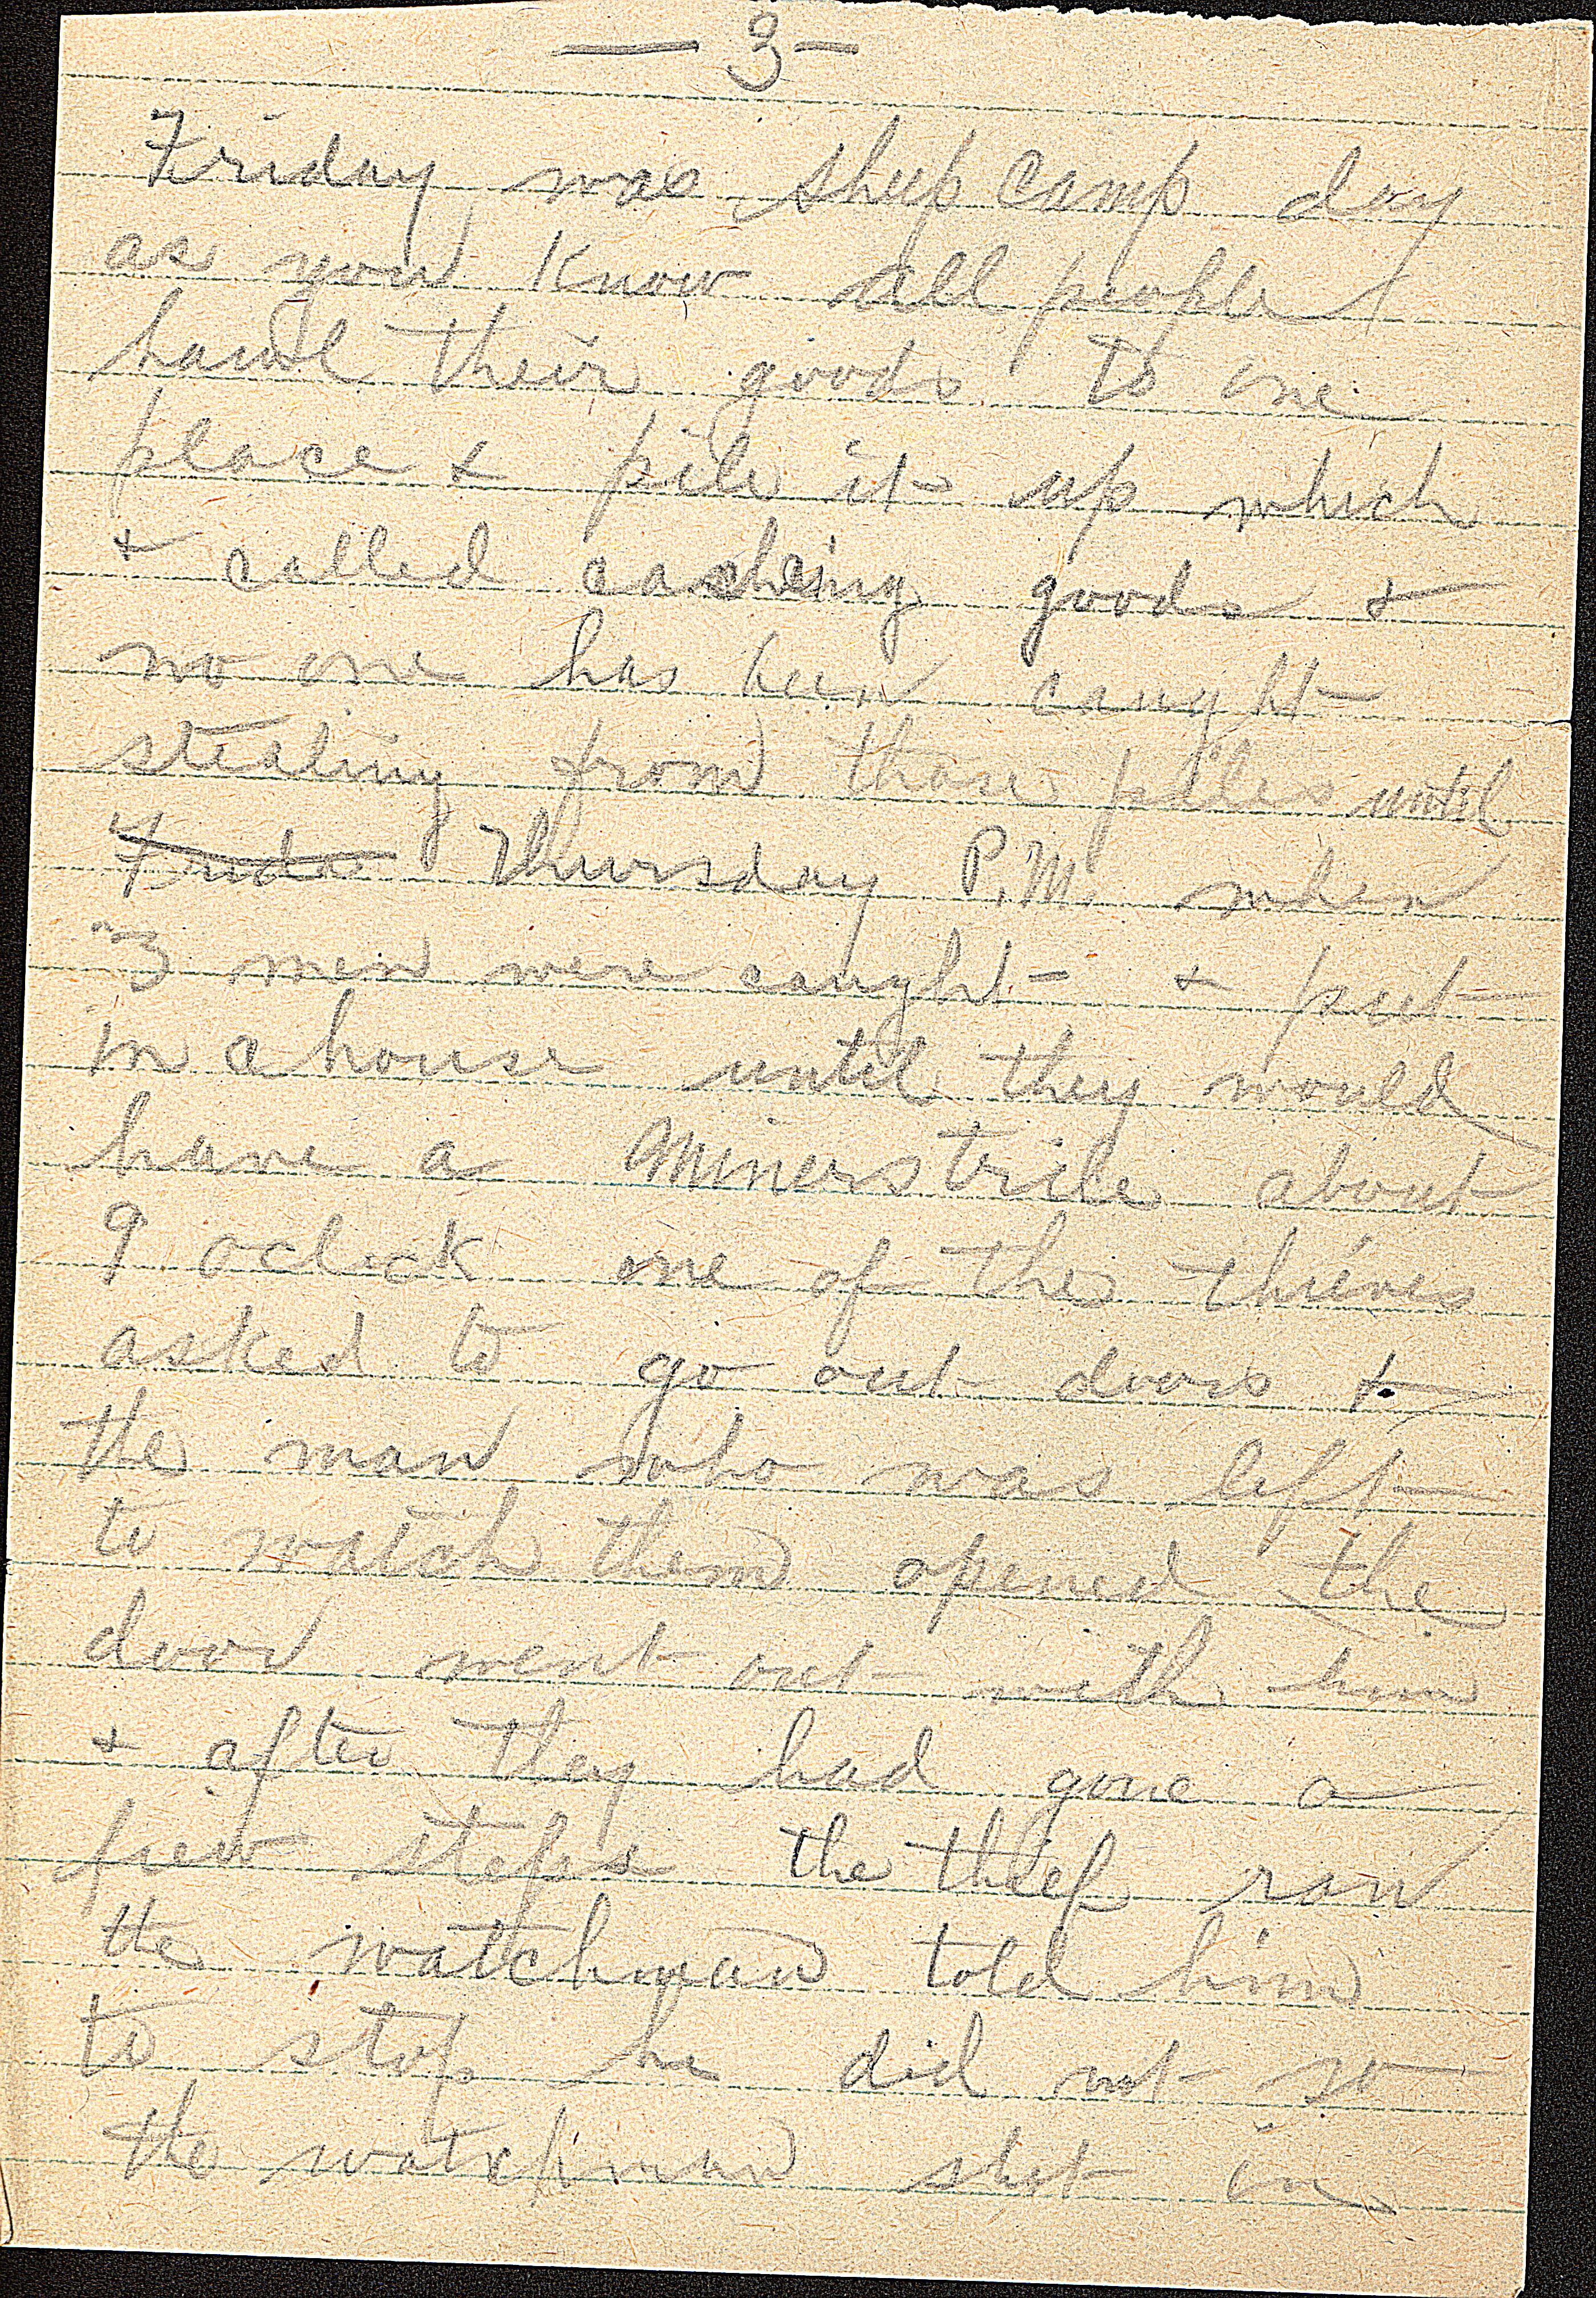 — 3 —
Friday was sheep camp day
as you know all people
hawl their goods to one
place & pile it up which
& called cacheing goods &
no one has been caught
stealing from those piles until
Frida Thursday P.M. when
3 men were caught & put
in a house until they would
have a Miners trile about
9 oclock one of the thieves
asked to go out doors &
the man who was left
to watch them opened the
door went out with him
& after they had gone a
few steps the thief ran
the watchman told him
to stop he did not so
the watchman shot in